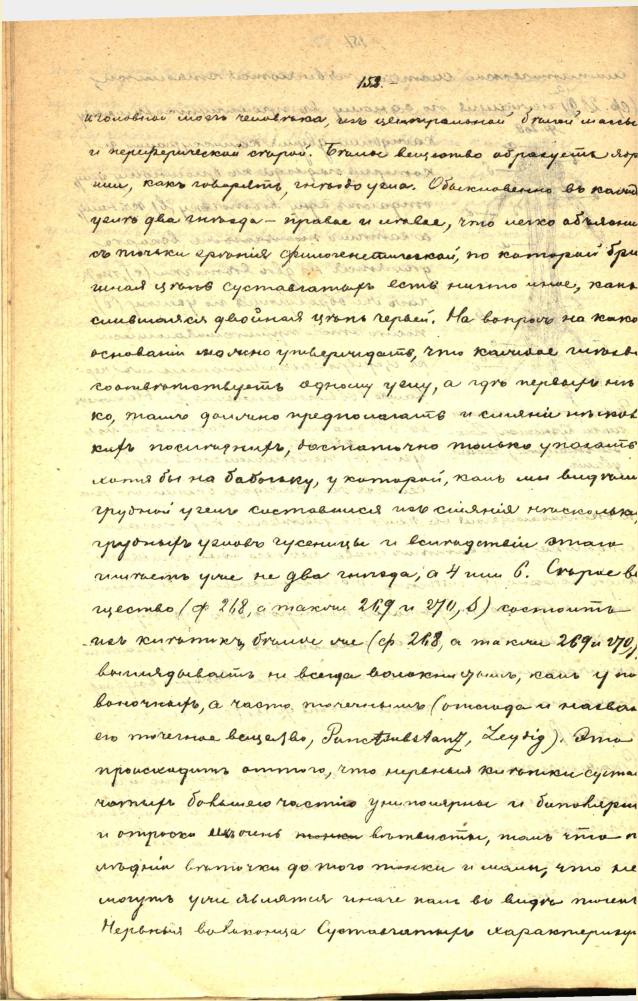 152.
и головной мозгъ человѣка, изъ центральной бѣлой массы
и периферической сѣрой. Бѣлое вещество образуетъ ядр
или, какъ говорятъ, гнѣздо узла. Обыкновенно въ кажд
узлѣ два гнѣзда – правое и лѣвое, что легко объясни
съ точки зрѣнія филогенетической, по которой брю
шная цѣпь суставчатыхъ есть ничто иное, какъ
слившаяся двойная цѣпь червей. На вопросъ на како
основаніи можно утверждать, что каждое гнѣздо
соотвѣтствуетъ одному узлу, а гдѣ первыхъ нѣс
ко, тамъ должно предполагать и сліяніе нѣсколь
кихъ послѣднихъ, достаточно только указать
хотя бы на бабочку, у которой, какъ мы видѣли
грудной узелъ составился изъ сліянія нѣсколько
грудныхъ узловъ гусеницы и вслѣдствіи этаго
имѣетъ уже не два гнѣзда, а 4 или 6. Сѣрое ве
щество (ф 268, а также 269 и 270, б) состоитъ
изъ клѣтокъ, бѣлое же (ф 268, а также 269 и 270,
выглядываетъ не всегда волокнистымъ, какъ у по
воночныхъ, а часто точечнымъ (отсюда и назван
его точечное вещество, Punctsubstanz, Leydig). Это
происходитъ оттого, что нервныя клѣтки суста
чатыхъ большею частію униполярны и биполярн
и отростки ихъ очень вѣтвисты, такъ что п
слѣднія вѣточки до того тонки и малы, что не
могутъ уже являтся иначе какъ въ видѣ точек
Нервныя волоконца Суставчатыхъ характеризую